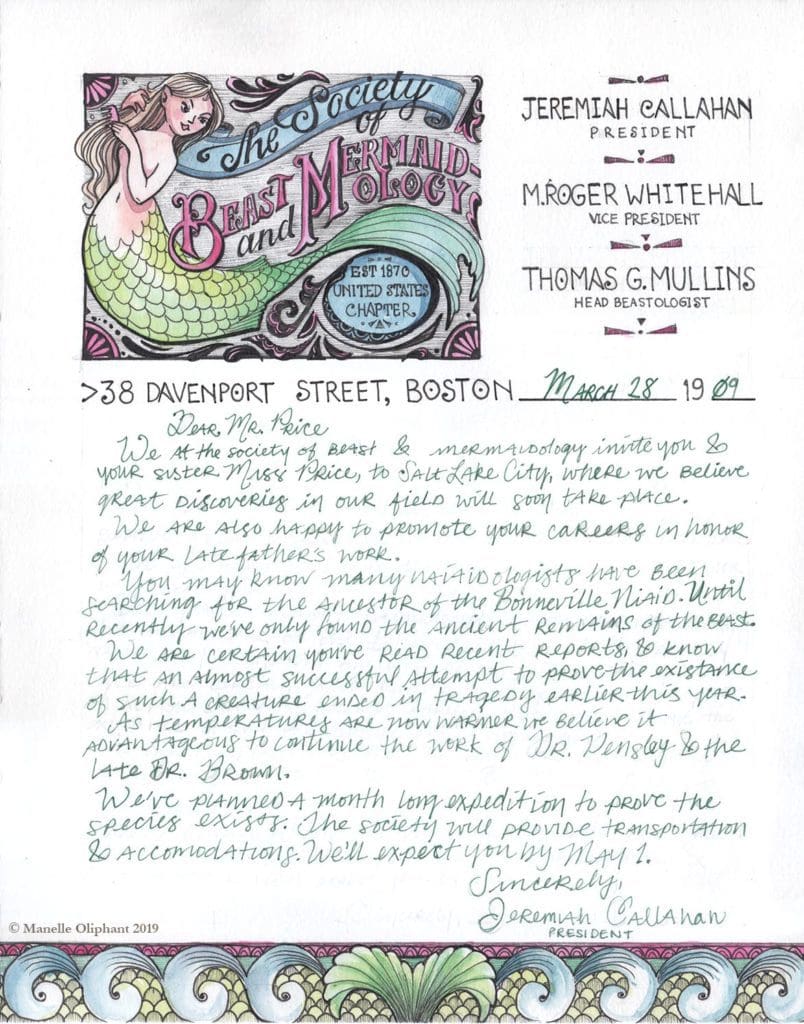 The Society
of
Beast
and
Mermaid-
ology
EST 1870
UNITED STATES
CHAPTER
JEREMIAH CALLAHAN
PRESIDENT
M. ROGER WHITEHALL
VICE PRESIDENT
THOMAS G. MULLINS
HEAD BEASTOLOGIST
>38 DAVENPORT STREET, BOSTON March 28 19 09
Dear Mr. Price
We at the society of Beast & mermaidology invite you &
your sister Miss Price, to Salt Lake City, where we believe
great discoveries in our field will soon take place.
We are also happy to promote your careers in honor
of your late father's work.
You may know many naiaidologists have been
searching for the ancestor of the Bonneville Niaid. Until
recently we've only found the ancient remains of the beast.
We are certain you've read recent reports, & know
that an almost successful attempt to prove the existance
of such a creature ended in tragedy earlier this year.
As temperatures are now warmer we believe it
advantageous to continue the work of Dr. Densley & the
late Dr. Brown.
We've planned a month long expedition to prove the
species exists. The society will provide transportation
& accomodations. We'll expect you by May 1.
Sincerely,
Jeremiah Callahan
PRESIDENT
© Manelle Oliphant 2019